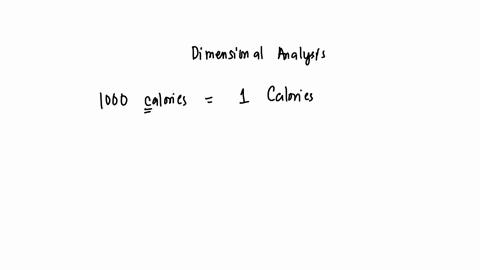 Dimensional Analysis
1000 calories = 1 Calories